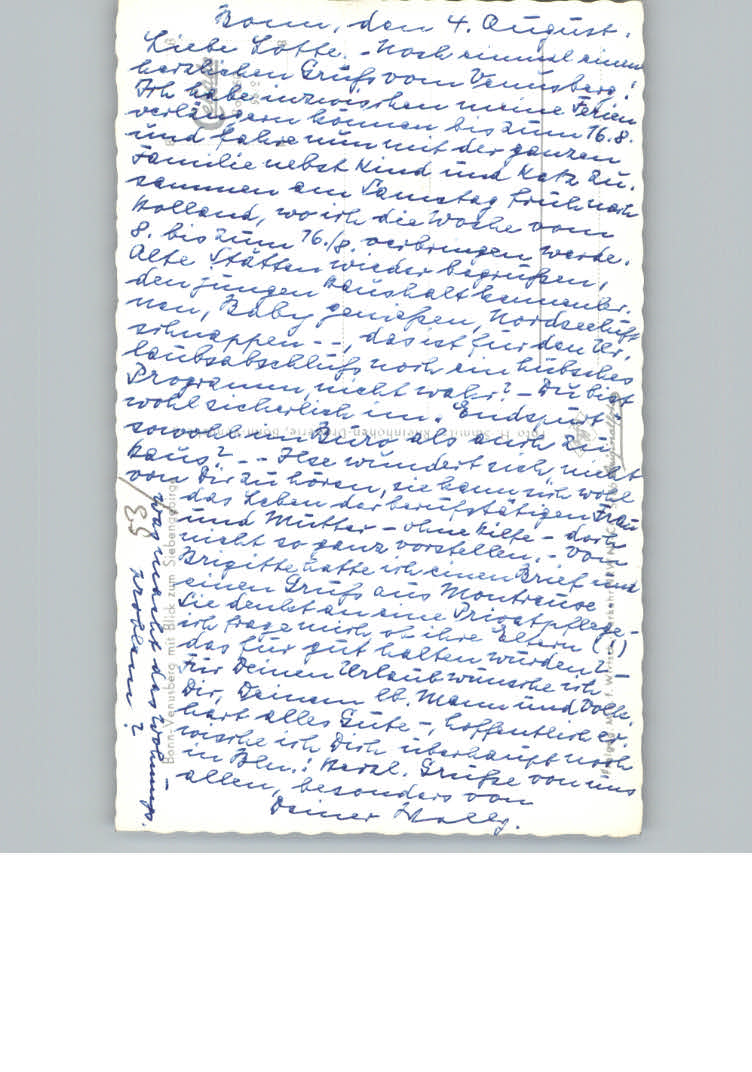 Bonn, den 4. August.
Liebe Lotte. - Noch einmal einen
herzlichen Gruß vom Venusberg!
Ich habe inzwischen meine Ferien
verlängern können bis zum 16.8.
und fahre nun mit der ganzen
Familie nebst Kind und Katz zu-
sammen am Samstag früh nach
Holland, wo ich die Woche vom
8. bis zum 16./8. verbringen werde.
Alte Stätten wieder begrüßen,
den jungen Haushalt kennenler-
nen, Baby genießen, Nordseeluft
schnappen - -, das ist für den Ur-
laubsabschluß noch ein hübsches
Programm, nicht wahr? - Du bist
wohl sicherlich im "Endspurt"
sowohl im Büro als auch zu
Haus? - - Ilse wundert sich, nicht
von Dir zu hören, sie kann sich wohl
das Leben der berufstätigen Frau
und Mutter - ohne Hilfe - doch
nicht so ganz vorstellen. - Von
Brigitte hatte ich einen Brief und
einen Gruß aus Montreux.
Sie denkt an eine Privatpflege -
ich frage mich, ob ihre Eltern (!)
das für gut halten würden? -
Für Deinen Urlaub wünsche ich
Dir, Deinem lb. Mann und Volk-
hart alles Gute -, hoffentlich er-
wische ich Dich überhaupt noch
in Bln.! Herzl. Grüße von uns
allen, besonders von
Deiner
Was macht das Wohnungs-
problem?
Bonn-Venusberg mit Blick zum Siebengebirge